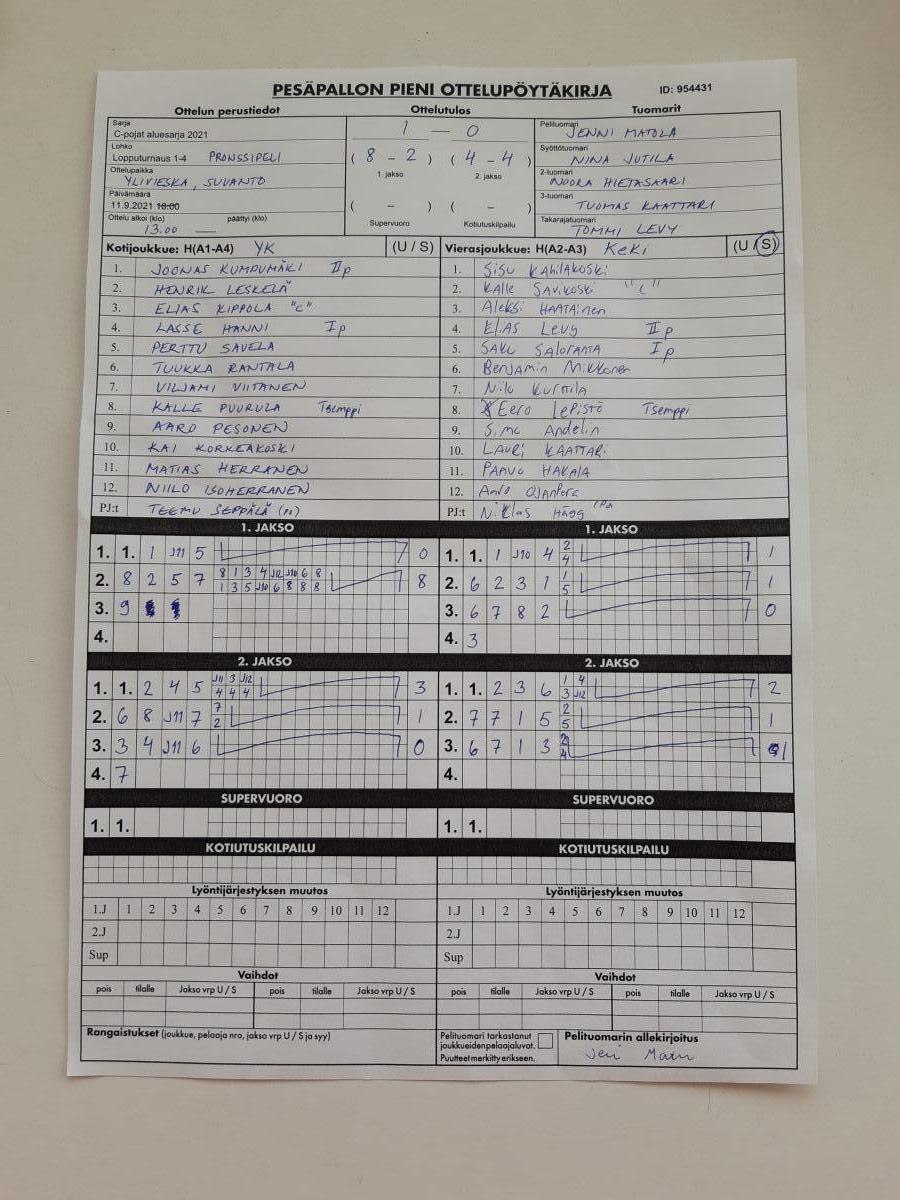 PESÄPALLON PIENI OTTELUPÖYTÄKIRJA ID: 954431
Ottelun perustiedot Ottelutulos Tuomarit
Sarja
C-pojat aluesarja 2021
Lohko
Lopputurnaus 1-4 PRONSSIPELI
Ottelupaikka
YLIVIESKA, SUVANTO
Päivämäärä
11.9.2021 18:00
Ottelu alkoi (klo) päättyi (klo)
13.00
1 — 0
( 8 - 2 ) ( 4 - 4 )
1. jakso 2. jakso
( - ) ( - )
Supervuoro Kotiutuskilpailu
Pelituomari
JENNI MATOLA
Syöttötuomari
NINA JUTILA
2-tuomari
NOORA HIETASAARI
3-tuomari
TUOMAS KAATTARI
Takarajatuomari
TOMMI LEVY
Kotijoukkue: H(A1-A4) YK (U / S)
1. JOONAS KUMPUMÄKI II p
2. HENRIK LESKELÄ
3. ELIAS KIPPOLA "C"
4. LASSE HANNI I p
5. PERTTU SAVELA
6. TUUKKA RANTALA
7. VILJAMI VIITANEN
8. KALLE PUURULA Tsemppi
9. AARO PESONEN
10. KAI KORKEAKOSKI
11. MATIAS HERRANEN
12. NIILO ISOHERRANEN
PJ:t TEEMU SEPPÄLÄ
Vierasjoukkue: H(A2-A3) KeKi (U / S)
1. Sisu Kahilakoski
2. Kalle Savikoski "C"
3. Aleksi HAATAinen
4. Elias Levy II p
5. SAKU SALORANTA I p
6. Benjamin Mikkonen
7. Niilo Kurttila
8. Eero Lepistö Tsemppi
9. Simo Andelin
10. LAURI KAATTARI
11. PAAVO HAKALA
12.
PJ:t Niklas Hägg
1. JAKSO
1. 1. 1 J11 5 0
2. 8 2 5 7 8 1 3 4 J12 J10 6 8 8
1 3 5 J10 6 8 8 8
3. 9
4.
1. JAKSO
1. 1. 1 J10 4 2 1
4
2. 6 2 3 1 1 1
5
3. 6 7 8 2 0
4. 3
2. JAKSO
1. 1. 2 4 5 J11 3 J12 3
4 4 4
2. 6 8 J11 7 7 1
2
3. 3 4 J11 6 0
4. 7
2. JAKSO
1. 1. 2 3 6 1 4 2
3 J12
2. 7 7 1 5 2 1
5
3. 6 7 1 3 2 1
4
4.
SUPERVUORO SUPERVUORO
1. 1. 1. 1.
KOTIUTUSKILPAILU KOTIUTUSKILPAILU
Lyöntijärjestyksen muutos Lyöntijärjestyksen muutos
1.J 1 2 3 4 5 6 7 8 9 10 11 12 1.J 1 2 3 4 5 6 7 8 9 10 11 12
2.J 2.J
Sup Sup
Vaihdot Vaihdot
pois tilalle Jakso vrp U / S pois tilalle Jakso vrp U / S pois tilalle Jakso vrp U / S pois tilalle Jakso vrp U / S
Rangaistukset (joukkue, pelaaja nro, jakso vrp U / S ja syy)
Pelituomari tarkastanut
joukkueidenpelaajaluvat.
Puutteet merkitty erikseen.
Pelituomarin allekirjoitus